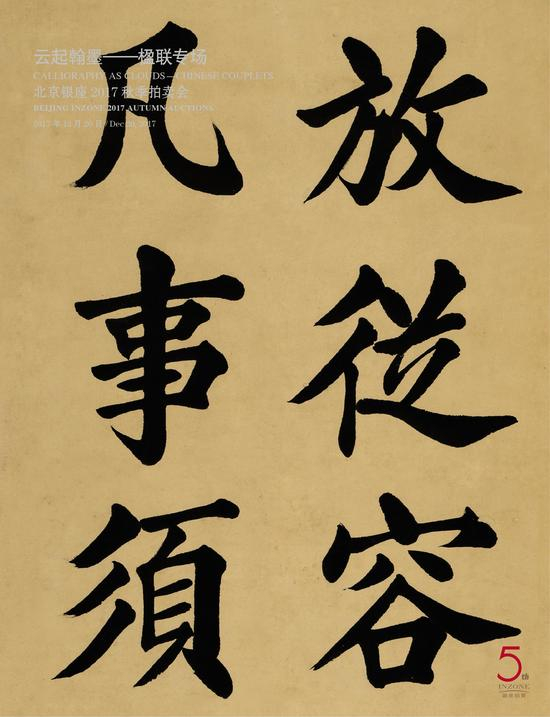 云起翰墨——楹联专场
CALLIGRAPHY AS CLOUDS – CHINESE COUPLETS
北京银座 2017 秋季拍卖会
BEIJING INZONE 2017 AUTUMN AUCTIONS
2017 年 12 月 20 日 / Dec 20, 2017
凡事須
放従容
5
INZONE